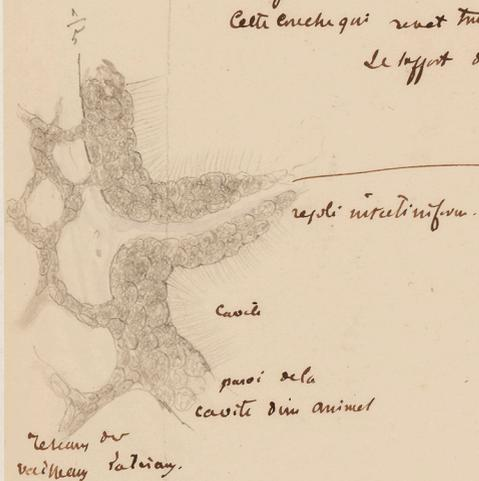 Cette couche qui revet
Le support d
repli intestiniform.
Cavité
paroi de la
cavité d'un animal
reseau de
vaisseau